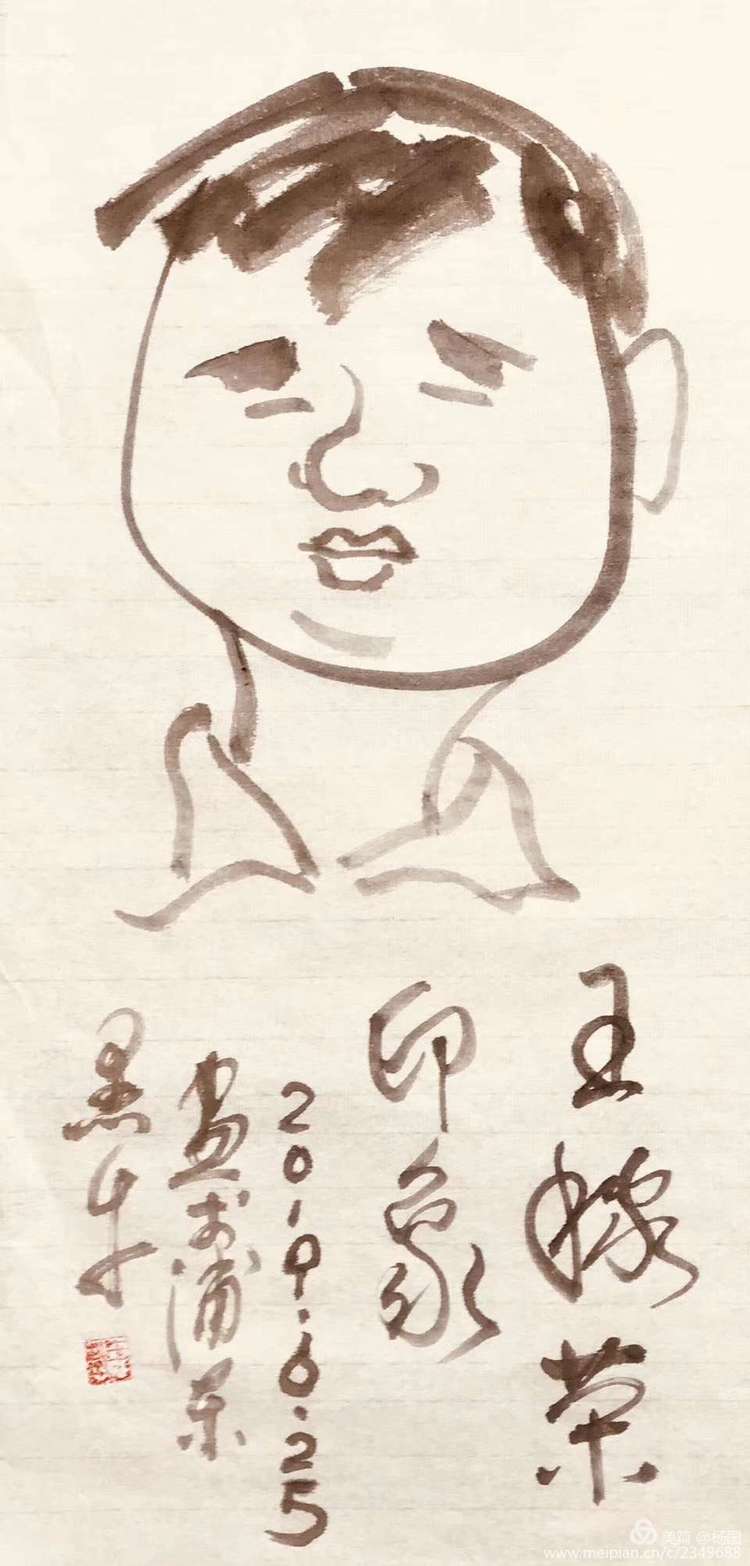 王稼荣
印象
2019.6.25
画于浦
黑牛
美篇 @杨国
www.meipian.cn/c/2349688